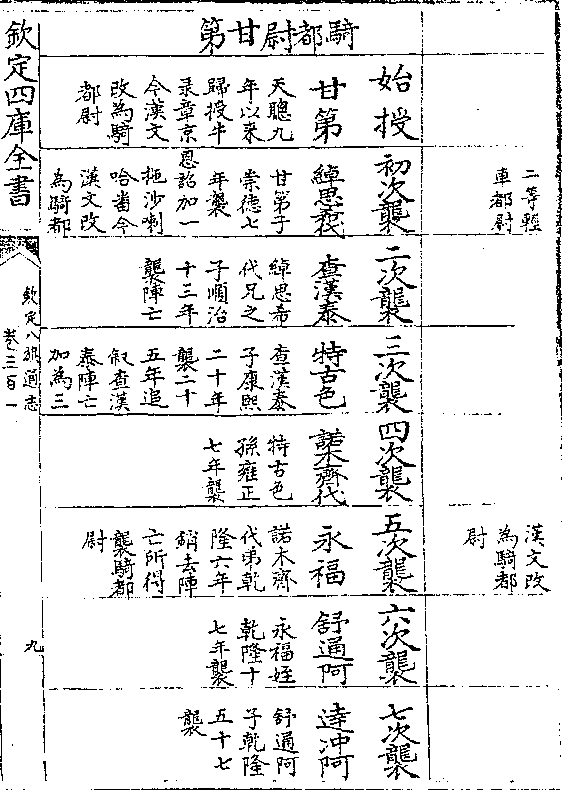 二等輕
車都尉
漢文改
為騎都
尉
騎都尉甘第
始授
甘第
天聰九
年以來
歸授牛
录章京
今漢文
改為騎
都尉
初次襲
綽思義
甘第子
崇德七
年襲
恩詔加一
拖沙喇
哈畨今
漢文改
為騎都
二次襲
查漢泰
綽思希
代兄之
子順治
十三年
襲陣亡
三次襲
特古色
查漢泰
子康熙
二十年
襲二十
五年追
叙查漢
泰陣亡
加為三
四次襲
諾木齊代
特古色
孫雍正
七年襲
五次襲
永福
諾木齊
代弟乾
隆六年
銷去陣
亡所得
襲騎都
尉
六次襲
舒通阿
永福姪
乾隆十
七年襲
七次襲
達冲阿
舒通阿
子乾隆
五十七
襲
欽定四庫全書
欽定八旗通志
卷三百一
九